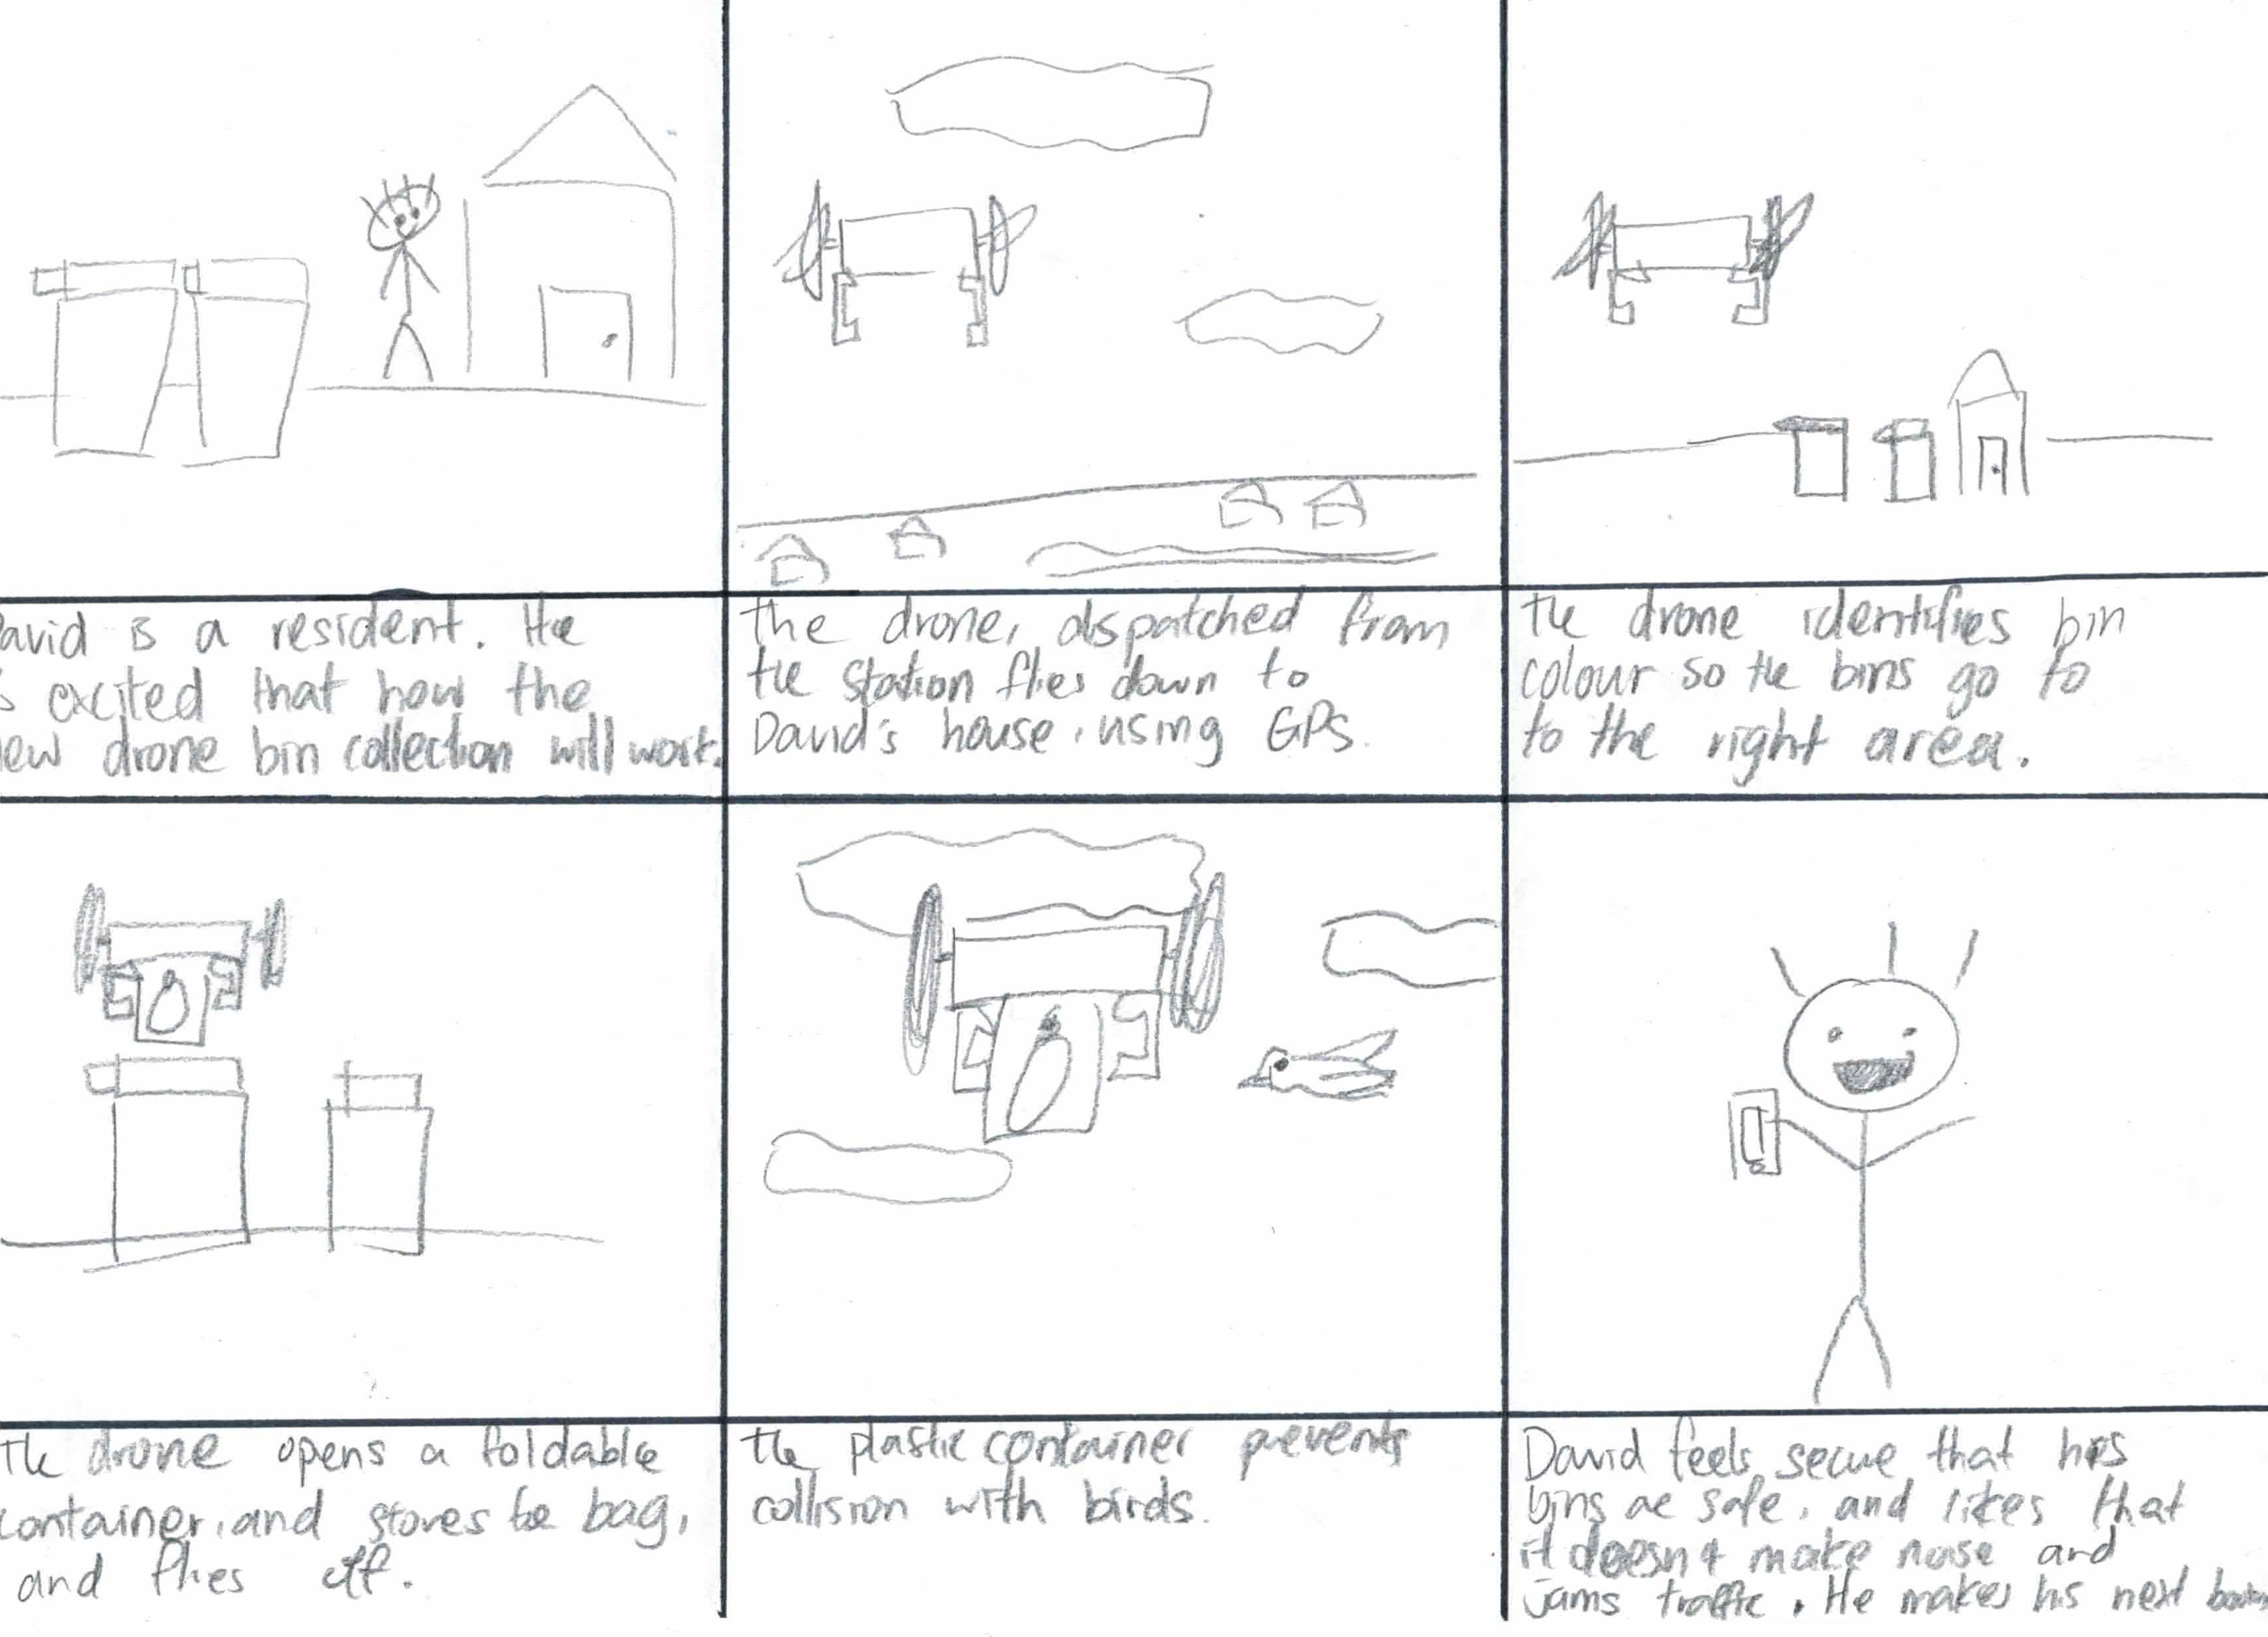 avid is a resident. He
s excited that how the
ew drone bin collection will work.
the drone, dispatched from
the station flies down to
David's house, using GPS.
the drone identifies bin
colour so the bins go to
to the right area.
the drone opens a foldable
container, and stores the bag,
and flies off.
the plastic container prevents
collision with birds.
David feels secure that his
bins are safe, and likes that
it doesn't make noise and
jams traffic. He makes his next